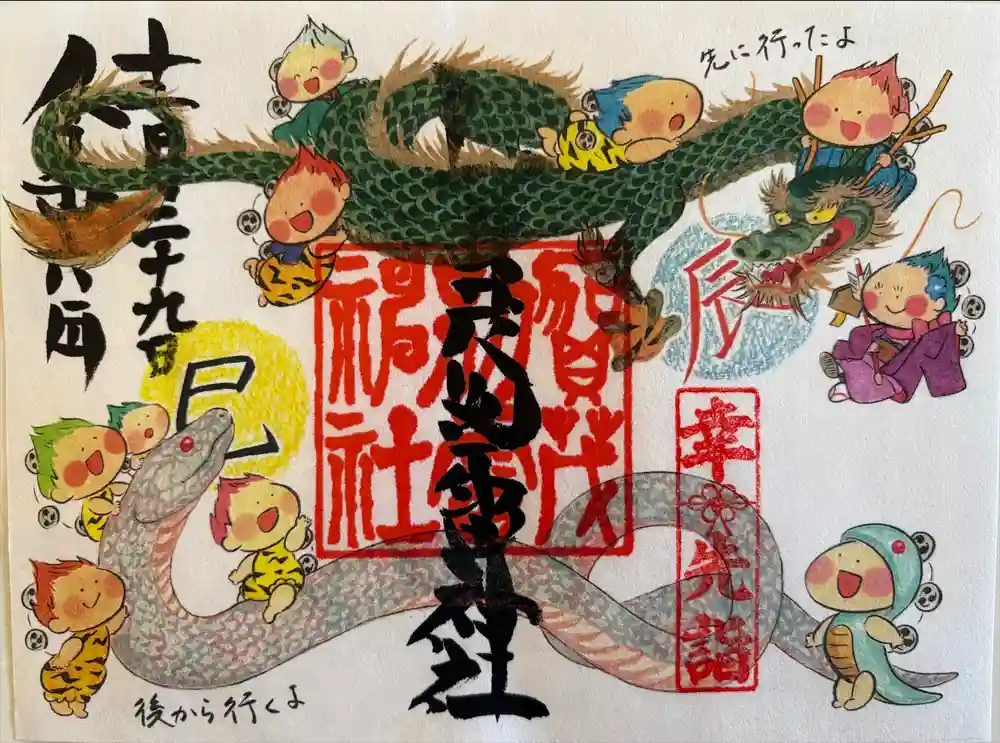 先に行ったよ
辰
幸先詣
賀茂別雷神社
巳
十二月二十九日
令和六年
後から行くよ